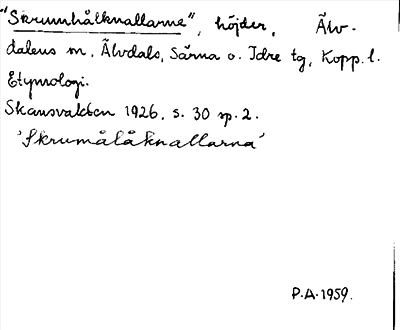 "Skrumhålknallarne", höjder, Älv-
dalens m. Älvdals, Särna o. Idre tg, Kopp. l.
Etymologi.
Skansvakten 1926, s. 30 sp. 2.
'Skrumålåknallarna'
P.A. 1959.